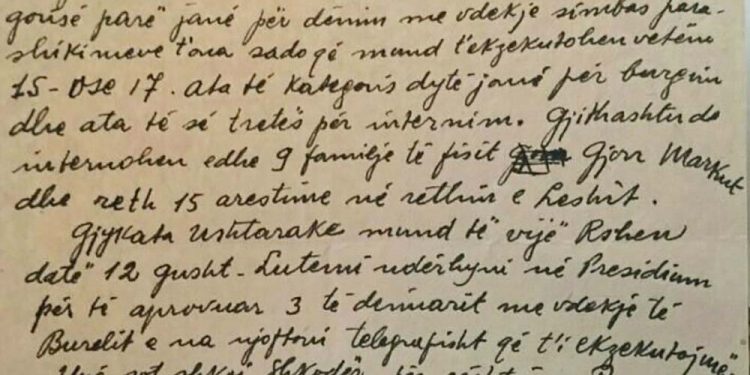 gorisë parë" janë për dënim me vdekje simbas para-
shikimeve t'ona sado që mund t'ekzekutohen vetëm
15 - ose 17. ata të kategoris dytë janë për burgim
dhe ata të së tretës për internim. Gjithashtu do
internohen edhe 9 familje të fisit Gjon Markut
dhe reth 15 arestime në rethin e Leshit.
Gjykata Ushtarake mund të vijë Rshen
datë 12 gusht - Lutemi ndërhyni në Presidium
për të aprovuar 3 të denuarit me vdekje të
Burelit e na njoftoni telegrafisht që t'i ekzekutojmë"
sot shkoj Shkodër